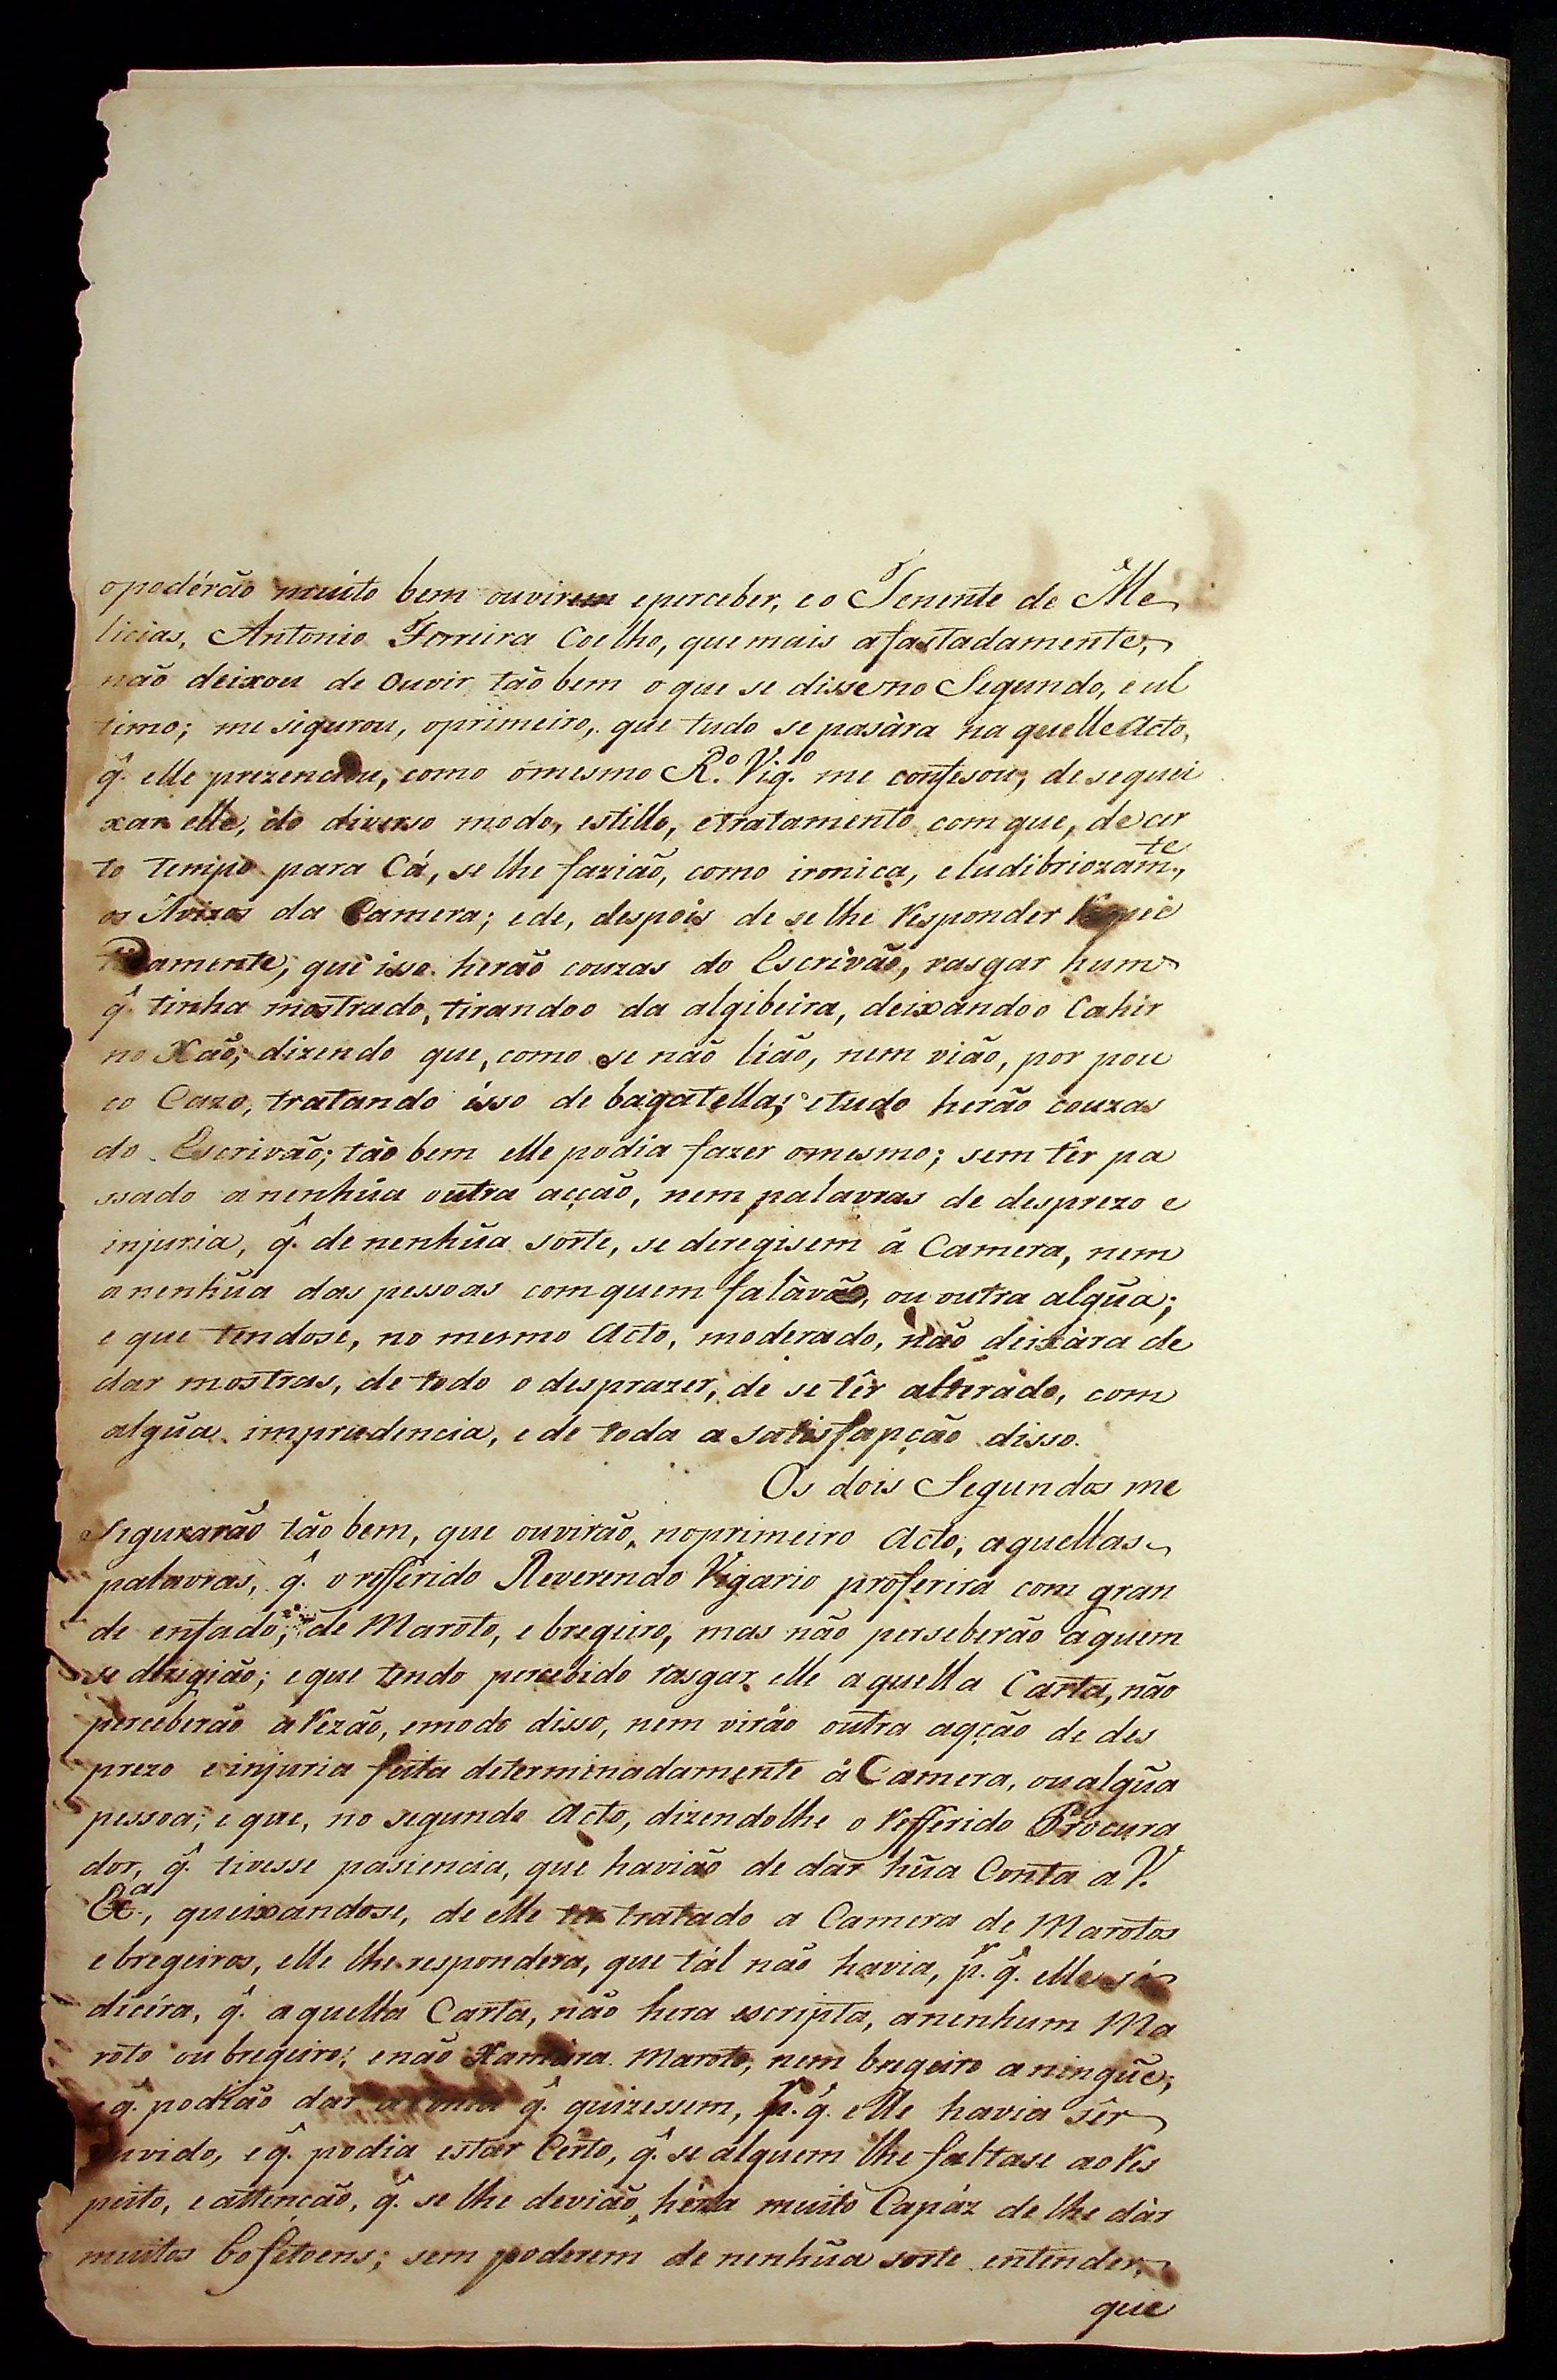 opodérão muito bem ouvirem eperceber, e o Tenente de Me
licias, Antonio Ferreira Coelho, que mais afastadamente,
não deixou de ouvir tão bem o que se disse no Segundo, e ul
timo; me sigurou, oprimeiro, que tudo se pasàra na quelle Acto,
q̂. elle prezenciou, como ómesmo R.º Vig.º me confesou, de se quei
xar elle, do diverso modo, estillo, etratamento com que, de cer
to tempo para Cá, se lhe fazião, como ironica, eludibriozam.te,
os Avizos da Camera; e de, despois de se lhe Responder
damente, que isso herão couzas do Escrivão, rasgar hum
q̂. tinha mostrado, tirandoo da algibeira, deixandoo Cahir
no Xão; dizendo que, como se não lião, nem vião, por pou
co Cazo, tratando ísso de bagatellas; etudo herão couzas
do Escrivão; tão bem elle podia fazer omesmo; sem têr pa
ssado a nenhũa outra acção, nem palavras de desprezo e
injuria, q̂. de nenhũa sorte, se deregisem á Camera, nem
a nenhũa das pessoas com quem falàvão, ou outra algũa;
e que tendose, no mesmo Acto, moderado, não deixàra de
dar mostras, de todo o desprazer, de se têr alterádo, com
algũa imprudencia, e de toda a satisfapção disso.
Os dois Segundos me
sigurarão tão bem, que ouvirão, noprimeiro Acto, aquellas
palavras, q̂. o refferido Reverendo Vigario proferira com gran
de enfado, de Maroto, e bregeiro, mas não perseberão a quem
se dirigião; e que tendo percebido rasgar elle aquella Carta, não
perceberão a Rezão, emodo disso, nem virão outra agção de des
prezo e injuria feita determinadamente á Camera, ou algũa
pessoa; e que, no segundo Acto, dizendolhe o Refferido Procura
dor, q̂. tivesse pasiencia, que havião de dar hũa Conta a V.
Ex.a, queixandose, de elle ter tratado a Camera de Marotos
e bregeiros, elle lhe respondera, que tál não havia, p.r q̂. elle só
dicéra, q̂. aquella Carta, não hera escripta, anenhum Ma
roto ou bregeiro; enão Xamára Maroto, nem bregeiro a ninguẽ;
e q̂. podião dar a Conta q̂. quizessem, p.r q̂. elle havia sêr
ouvido, e q̂. podia estar Certo, q̂. se alguem lhe faltase ao Res
peito, e attenção, q̂. se lhe devião, héra muito Capáz de lhe dàr
muitos bofetoens; sem poderem de nenhũa sorte entender,
que